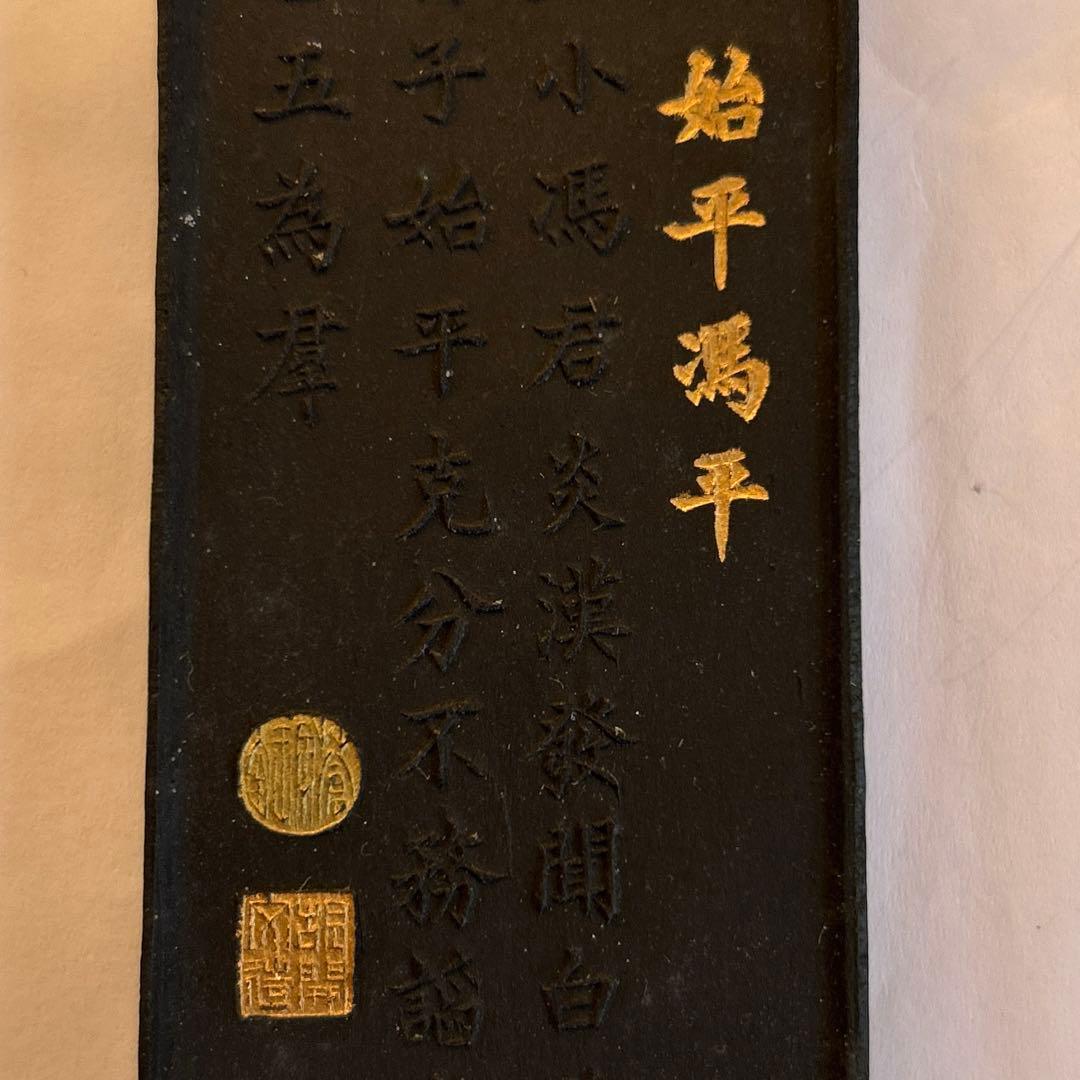 始平馮平
小馮君炎漢發聞白
子始平克分不務謡
五為羣
胡開文造